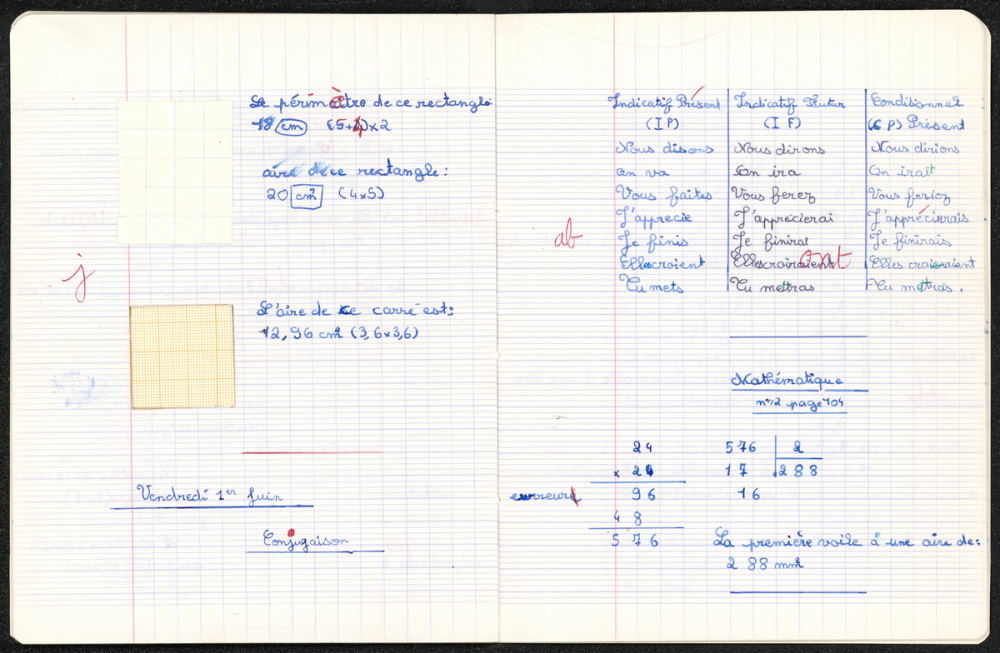 Le périmètre de ce rectangle
18 cm (5+4)x2
aire de ce rectangle:
20 cm² (4x5)
j
L'aire de ce carré est:
12,96 cm² (3,6x3,6)
Vendredi 1er Juin
Conjugaison
Indicatif Présent Indicatif Futur Conditionnel
(I P) (I F) (C P) Présent
Nous disons Nous dirons Nous dirions
On va On ira On irait
Vous faites Vous ferez Vous feriez
ab
J'apprecie J'apprécierai J'apprécierais
Je finis Je finirai Je finirais
Elles croient Elles croiraient ont Elles croiraient
Tu mets Tu mettras Tu mettras.
Mathématique
n°12 page 104
24 576 2
x 24 17 288
erreur 96 16
48
576 La première voile à une aire de:
288 mm²